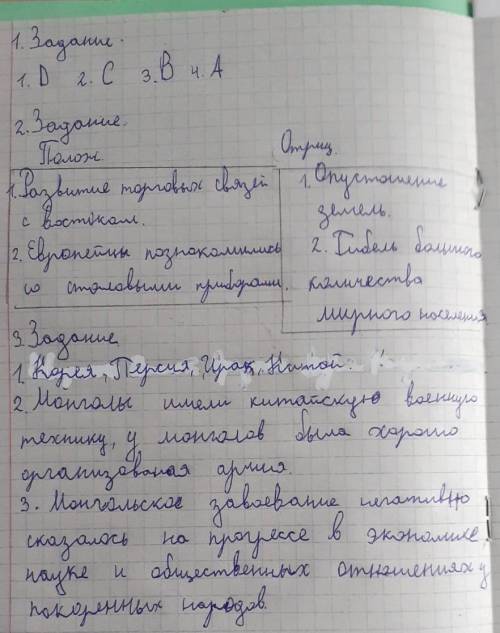 1. Задание.
1. D 2. C 3. B 4. A
2. Задание.
Полож.
Отриц.
1. Развитие торговых связей
с востоком.
2. Европейцы познакомились
со столовыми приборами.
1. Опустошение
земель.
2. Гибель большого
количества
мирного населения
3. Задание
1. Корея, Персия, Ирак, Китай.
2. Монголы имели китайскую военную
технику, у монголов была хорошо
организованая армия.
3. Монгольское завоевание негативно
сказалось на прогрессе в экономике,
науке и общественных отношениях у
покоренных народов.